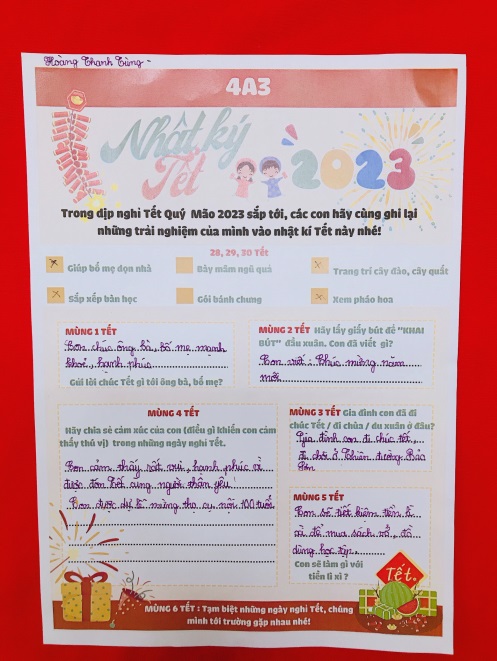 Hoàng Thanh Tùng -
4A3
Nhật ký
Tết
2023
Trong dịp nghỉ Tết Quý Mão 2023 sắp tới, các con hãy cùng ghi lại
những trải nghiệm của mình vào nhật kí Tết này nhé!
28, 29, 30 Tết
Giúp bố mẹ dọn nhà
Bày mâm ngũ quả
Trang trí cây đào, cây quất
Sắp xếp bàn học
Gói bánh chưng
Xem pháo hoa
MÙNG 1 TẾT
Con chúc ông bà, bố mẹ mạnh
khoẻ, hạnh phúc
Gửi lời chúc Tết gì tới ông bà, bố mẹ?
MÙNG 2 TẾT Hãy lấy giấy bút để "KHAI
BÚT" đầu xuân. Con đã viết gì?
Con viết: Chúc mừng năm
mới
MÙNG 4 TẾT
Hãy chia sẻ cảm xúc của con (điều gì khiến con cảm
thấy thú vị) trong những ngày nghỉ Tết.
Con cảm thấy rất vui, hạnh phúc vì
được đón Tết cùng người thân yêu
Con được dự lễ mừng thọ cụ nội 100 tuổi
MÙNG 3 TẾT Gia đình con đã đi
chúc Tết / đi chùa / du xuân ở đâu?
Gia đình con đi chúc tết,
đi chơi ở Thiên đường Bảo
Sơn
MÙNG 5 TẾT
Con sẽ tiết kiệm tiền lì
xì để mua sách vở, đồ
dùng học tập.
Con sẽ làm gì với
tiền lì xì ?
Tết
MÙNG 6 TẾT : Tạm biệt những ngày nghỉ Tết, chúng
mình tới trường gặp nhau nhé!